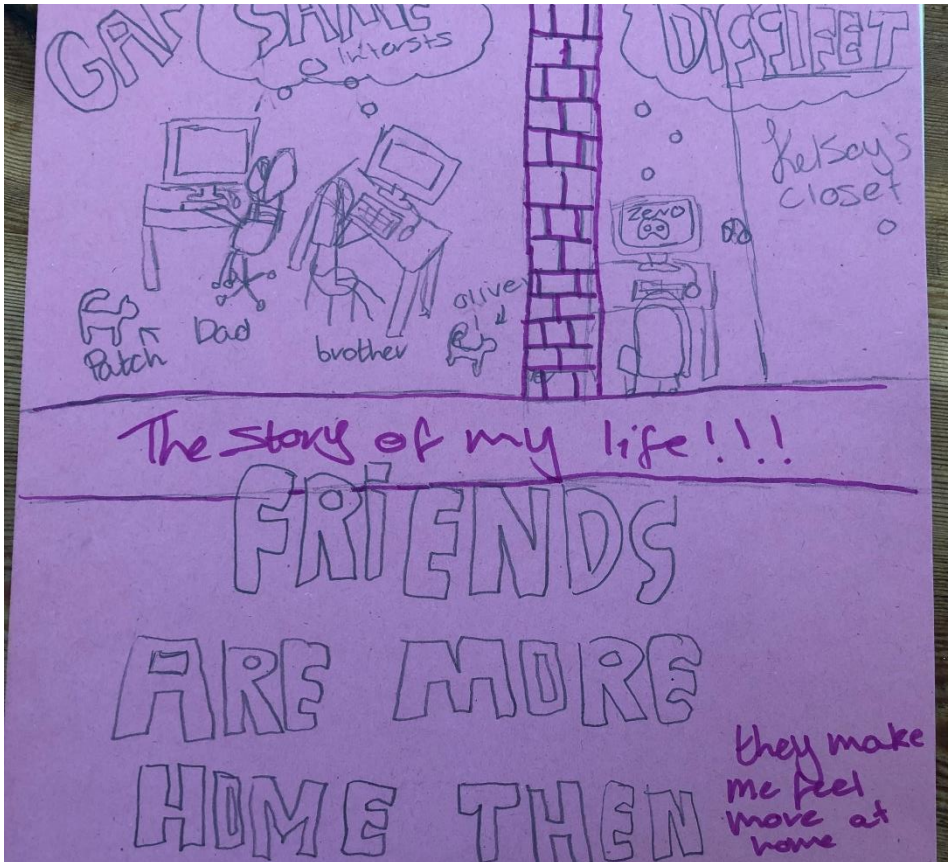 GAM
SAME
intersts
DIFFIFEET
Kelsay's
closet
ZENO
oliver
Patch
Dad
brother
The story of my life!!!
FRiENDS
ARE MORE
HOME THEN
they make
me feel
more at
home